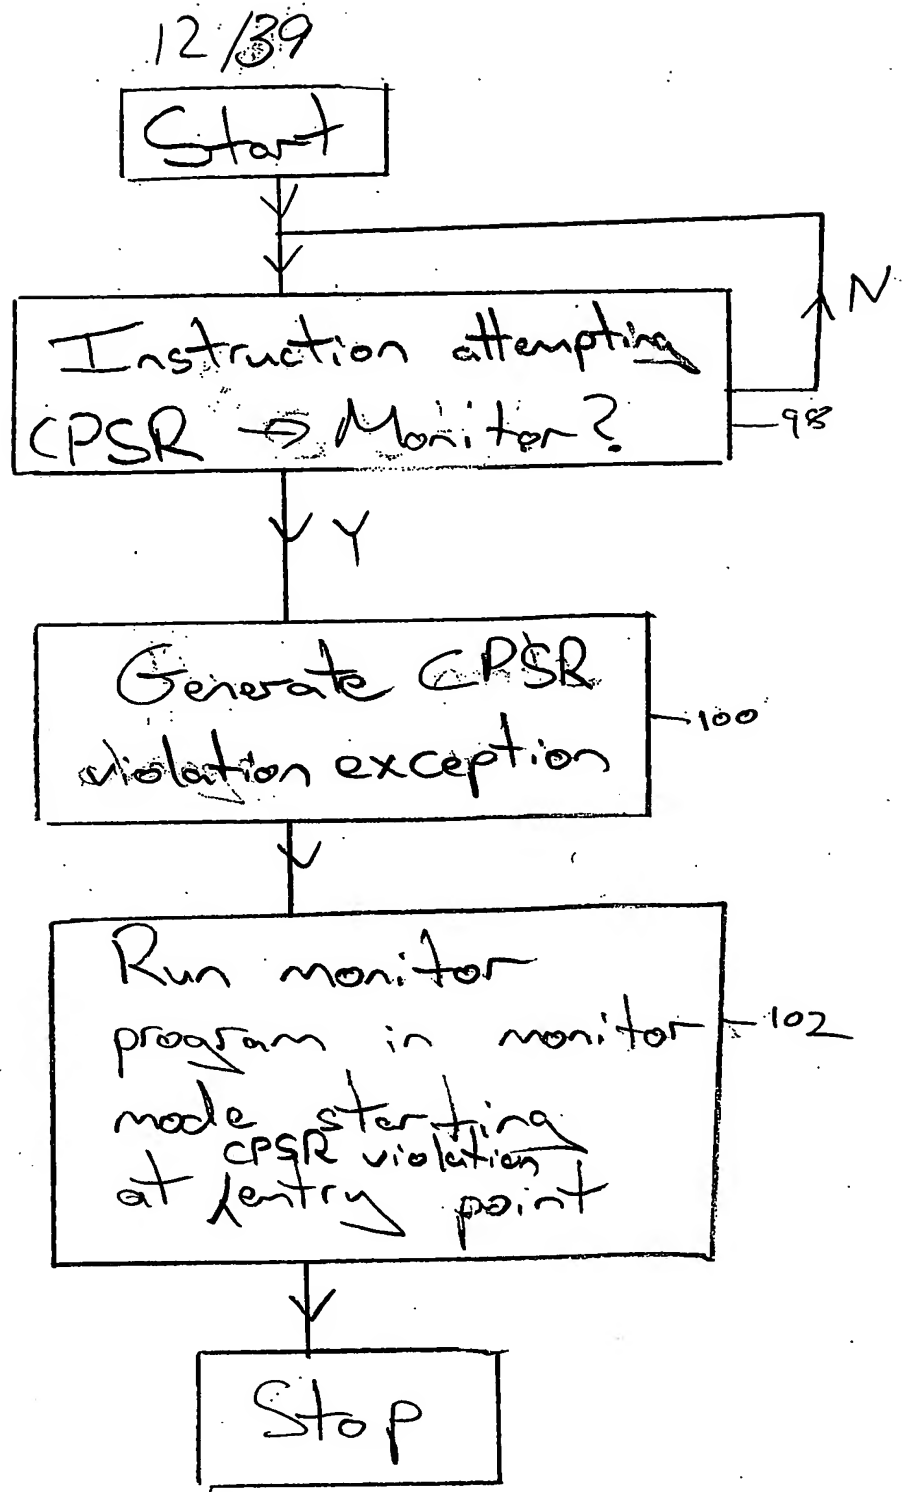 12/39
Start
N
Instruction attempting
CPSR → Monitor?
98
Y
Generate CPSR
violation exception
100
Run monitor
program in monitor
102
mode starting
CPSR violation
at entry point
Stop